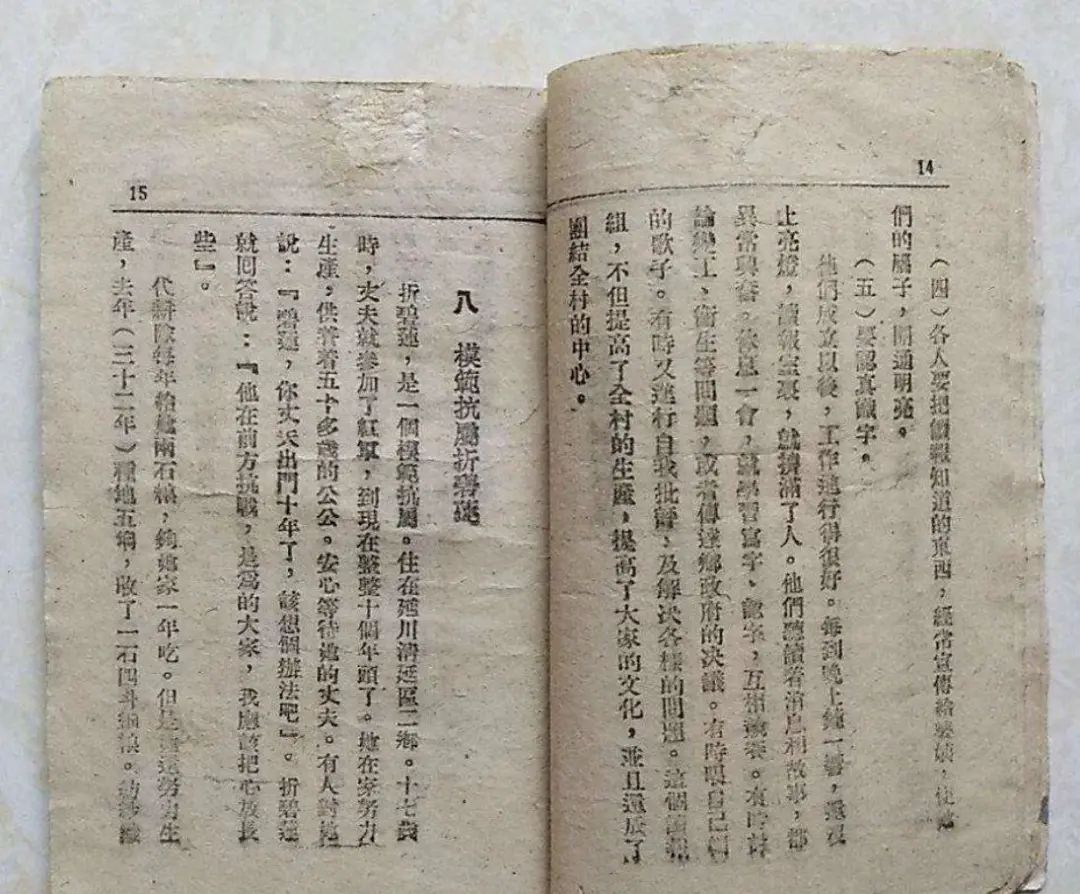 14
（四）各人要把讀報知道的東西，經常宣傳給婆姨，使她
們的腦子，開通明亮。
（五）要認真識字。
他們成立以後，工作進行得很好。每到晚上鐘一響，窰裏
上亮燈，讀報室裏，就擠滿了人。他們聽讀着消息和故事，都
異常興奮。休息一會，就學習寫字、識字，互相競賽。有時討
論變工、衛生等問題，或者傳達鄉政府的决議。有時唱自己編
的歌子。有時又進行自我批評，及解决各樣的問題。這個讀報
組，不但提高了全村的生產，提高了大家的文化，並且還成了
團結全村的中心。
15
八　模範抗屬折碧蓮
折碧蓮，是一個模範抗屬。住在延川清延區二鄉。十七歲
時，丈夫就參加了紅軍，到現在整整十個年頭了。她在家努力
生產，供養着五十多歲的公公。安心等待她的丈夫。有人對她
說：『碧蓮，你丈夫出門十年了，該想個辦法吧』。折碧蓮
就回答說：『他在前方抗戰，是爲的大家，我應該把心放長
些』。
代耕隊每年給她兩石糧，夠她家一年吃。但是她還努力生
產，去年（三十二年）種地五垧，收了一石四斗細糧。紡紗織